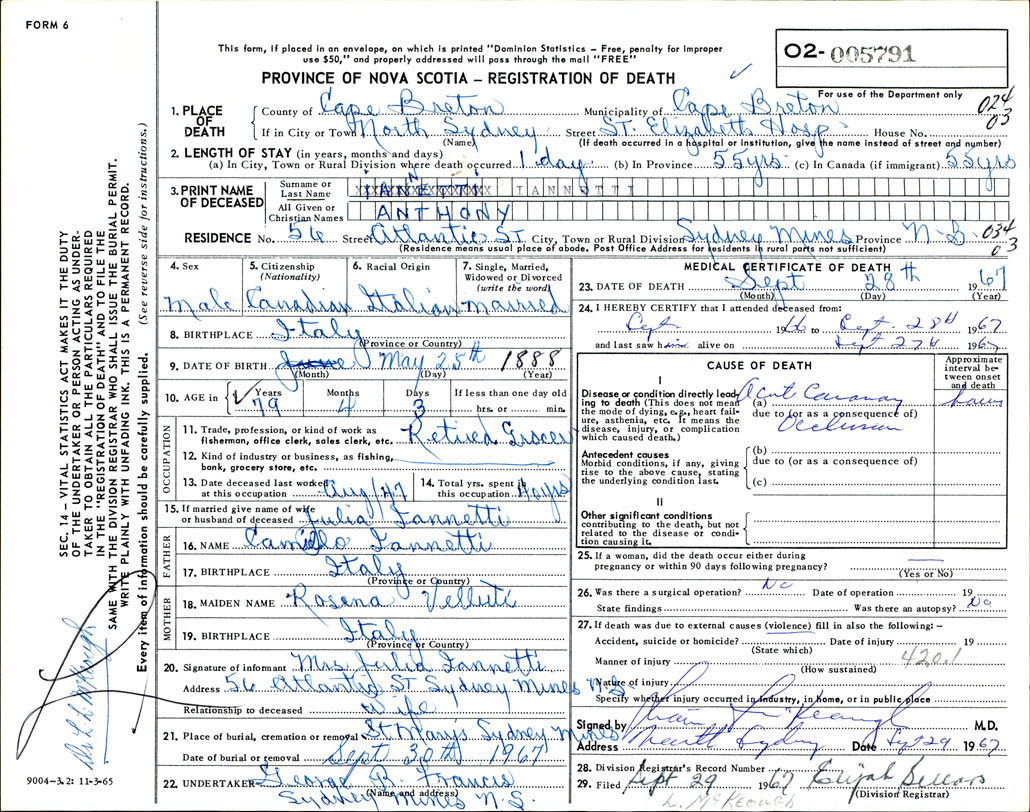 FORM 6
This form, if placed in an envelope, on which is printed "Dominion Statistics – Free, penalty for improper
use $50," and properly addressed will pass through the mail "FREE"
O2- 005791
PROVINCE OF NOVA SCOTIA – REGISTRATION OF DEATH
For use of the Department only
1. PLACE OF DEATH
County of Cape Breton Municipality of Cape Breton 024
03
If in City or Town North Sydney Street ST. Elizabeth Hosp House No.
(Name) (If death occurred in a hospital or institution, give the name instead of street and number)
2. LENGTH OF STAY (in years, months and days)
(a) In City, Town or Rural Division where death occurred 1 day (b) In Province 55 yrs. (c) In Canada (if immigrant) 55 yrs
3. PRINT NAME OF DECEASED
Surname or Last Name IANNOTTI
All Given or Christian Names ANTHONY
RESIDENCE No. 56 Street Atlantic ST. City, Town or Rural Division Sydney Mines Province N.S. 034
03
(Residence means usual place of abode. Post Office Address for residents in rural parts not sufficient)
4. Sex 5. Citizenship (Nationality) 6. Racial Origin 7. Single, Married, Widowed or Divorced (write the word)
Male Canadian Italian Married
8. BIRTHPLACE Italy
(Province or Country)
9. DATE OF BIRTH June May 25th 1888
(Month) (Day) (Year)
10. AGE in Years Months Days If less than one day old
79 4 3 hrs. or min.
OCCUPATION
11. Trade, profession, or kind of work as fisherman, office clerk, sales clerk, etc. Retired Grocer
12. Kind of industry or business, as fishing, bank, grocery store, etc.
13. Date deceased last worked at this occupation Aug/47 14. Total yrs. spent in this occupation 40 yrs
15. If married give name of wife or husband of deceased Julia Iannetti
FATHER
16. NAME Camillo Iannetti
17. BIRTHPLACE Italy
(Province or Country)
MOTHER
18. MAIDEN NAME Rosena Velluti
19. BIRTHPLACE Italy
(Province or Country)
20. Signature of informant Mrs Julia Iannetti
Address 56 Atlantic ST Sydney Mines N.S
Relationship to deceased wife
21. Place of burial, cremation or removal St Mary's Sydney Mines
Date of burial or removal Sept 30th 1967
22. UNDERTAKER George B. Francis
(Name and address)
Sydney Mines N.S.
MEDICAL CERTIFICATE OF DEATH
23. DATE OF DEATH Sept 28th 1967
(Month) (Day) (Year)
24. I HEREBY CERTIFY that I attended deceased from:
Sept. 1966 to Sept. 28th 1967
and last saw him alive on Sept 27th 1967
CAUSE OF DEATH
Approximate interval between onset and death
I
Disease or condition directly leading to death (This does not mean the mode of dying, e.g., heart failure, asthenia, etc. It means the disease, injury, or complication which caused death.)
(a) Acut Coronary hours
due to (or as a consequence of)
Occlusion
Antecedent causes
Morbid conditions, if any, giving rise to the above cause, stating the underlying condition last.
(b)
due to (or as a consequence of)
(c)
II
Other significant conditions
contributing to the death, but not related to the disease or condition causing it.
25. If a woman, did the death occur either during
pregnancy or within 90 days following pregnancy? —
(Yes or No)
26. Was there a surgical operation? No Date of operation 19
State findings Was there an autopsy? No
27. If death was due to external causes (violence) fill in also the following:–
Accident, suicide or homicide? Date of injury 19
(State which)
Manner of injury 420.1
(How sustained)
Nature of injury
Specify whether injury occurred in industry, in home, or in public place
Signed by McKeough M.D.
Address North Sydney Date Sept 29 1967
28. Division Registrar's Record Number
29. Filed Sept 29 1967 Elijah
(Division Registrar)
L. McKeough
SEC. 14 – VITAL STATISTICS ACT MAKES IT THE DUTY
OF THE UNDERTAKER OR PERSON ACTING AS UNDER-
TAKER TO OBTAIN ALL THE PARTICULARS REQUIRED
IN THE "REGISTRATION OF DEATH" AND TO FILE THE
SAME WITH THE DIVISION REGISTRAR WHO SHALL ISSUE THE BURIAL PERMIT.
WRITE PLAINLY WITH UNFADING INK. THIS IS A PERMANENT RECORD.
Every item of information should be carefully supplied. (See reverse side for instructions.)
Dr L L McKeough
9004-3.2: 11-3-65